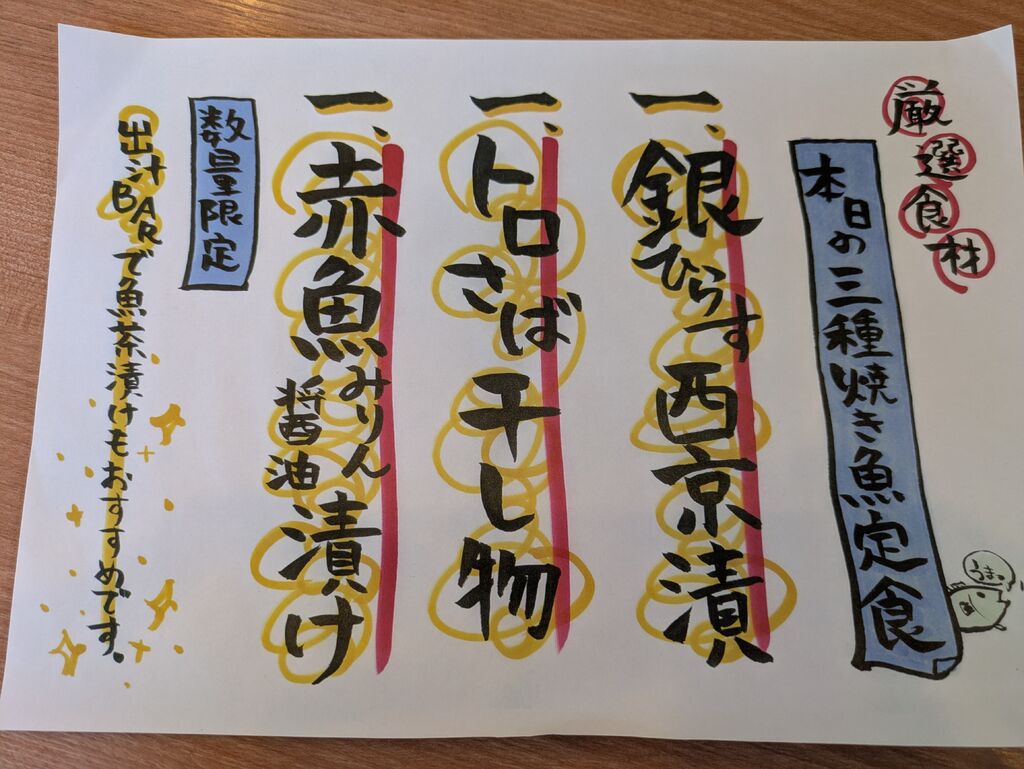 厳選食材
本日の三種焼き魚定食
うまっ
一、銀ひらす西京漬
一、トロさば干し物
一、赤魚みりん醤油漬け
数量限定
出汁BARで魚茶漬けもおすすめです。